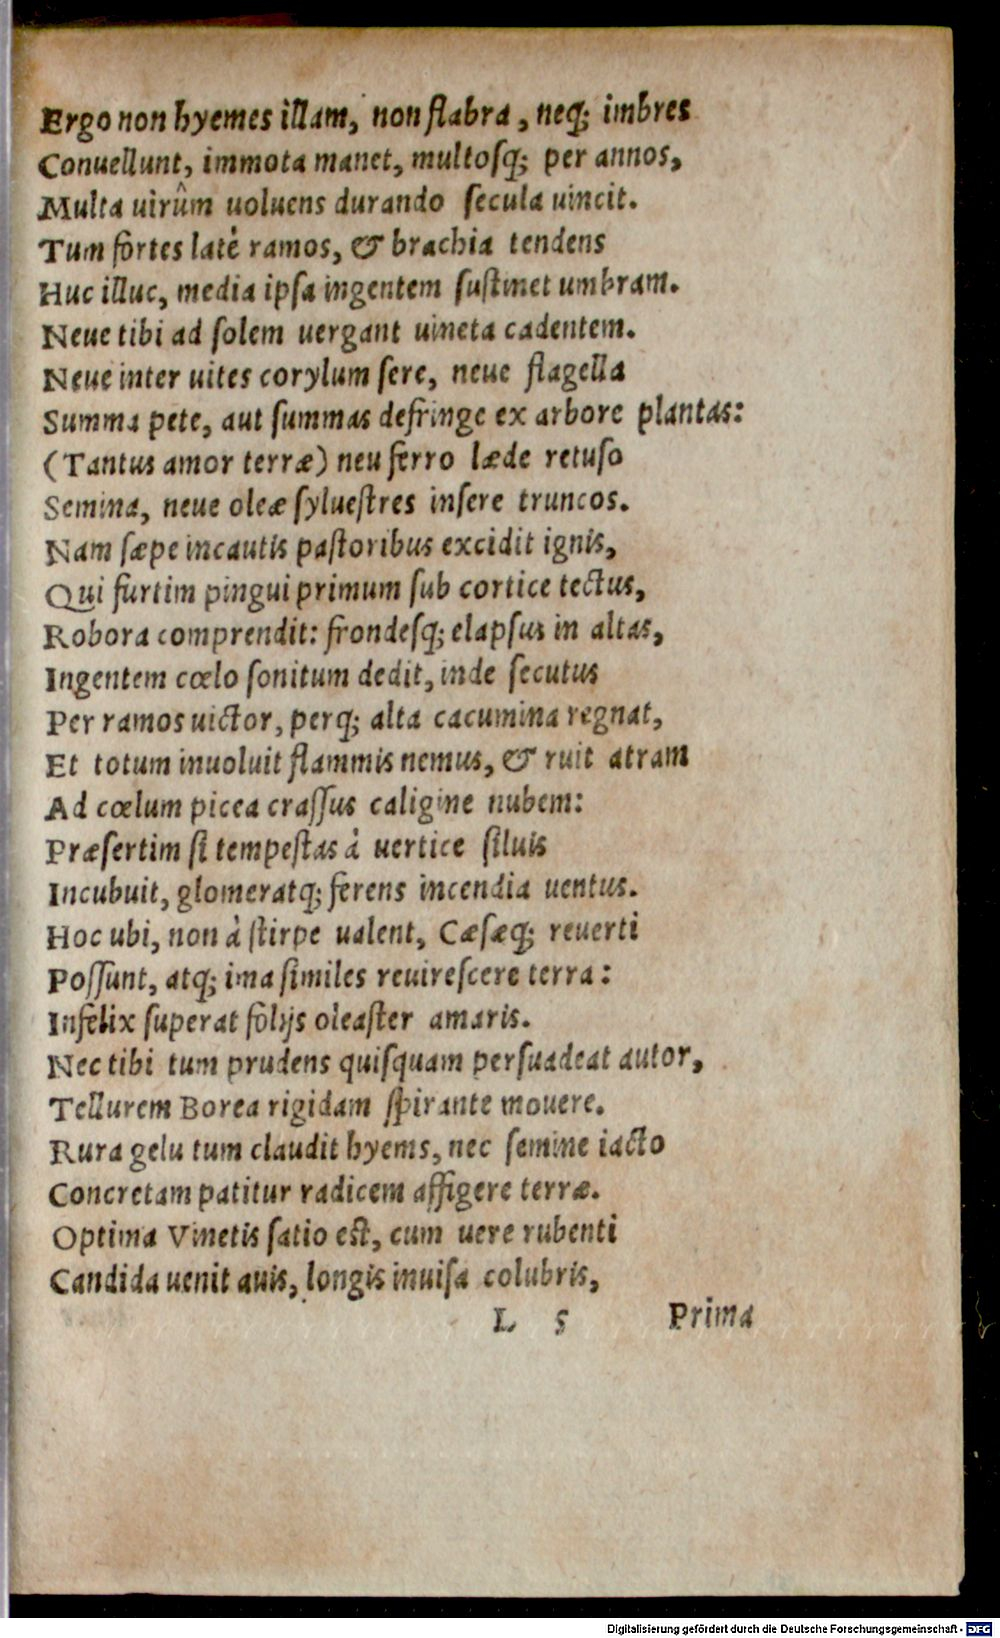 Ergo non hyemes illam, non flabra, neq; imbres
Conuellunt, immota manet, multosq; per annos,
Multa uirûm uoluens durando secula uincit.
Tum fortes latè ramos, & brachia tendens
Huc illuc, media ipsa ingentem sustinet umbram.
Neue tibi ad solem uergant uineta cadentem.
Neue inter uites corylum sere, neue flagella
Summa pete, aut summas defringe ex arbore plantas:
(Tantus amor terræ) neu ferro læde retuso
Semina, neue oleæ syluestres insere truncos.
Nam sæpe incautis pastoribus excidit ignis,
Qui furtim pingui primum sub cortice tectus,
Robora comprendit: frondesq; elapsus in altas,
Ingentem cœlo sonitum dedit, inde secutus
Per ramos uictor, perq; alta cacumina regnat,
Et totum inuoluit flammis nemus, & ruit atram
Ad cœlum picea crassus caligine nubem:
Præsertim si tempestas à uertice siluis
Incubuit, glomeratq; ferens incendia uentus.
Hoc ubi, non à stirpe ualent, Cæsæq; reuerti
Possunt, atq; ima similes reuirescere terra:
Infelix superat folijs oleaster amaris.
Nec tibi tum prudens quisquam persuadeat autor,
Tellurem Borea rigidam spirante mouere.
Rura gelu tum claudit hyems, nec semine iacto
Concretam patitur radicem affigere terræ.
Optima Vinetis satio est, cum uere rubenti
Candida uenit auis, longis inuisa colubris,
L 5 Prima
Digitalisierung gefördert durch die Deutsche Forschungsgemeinschaft - DFG